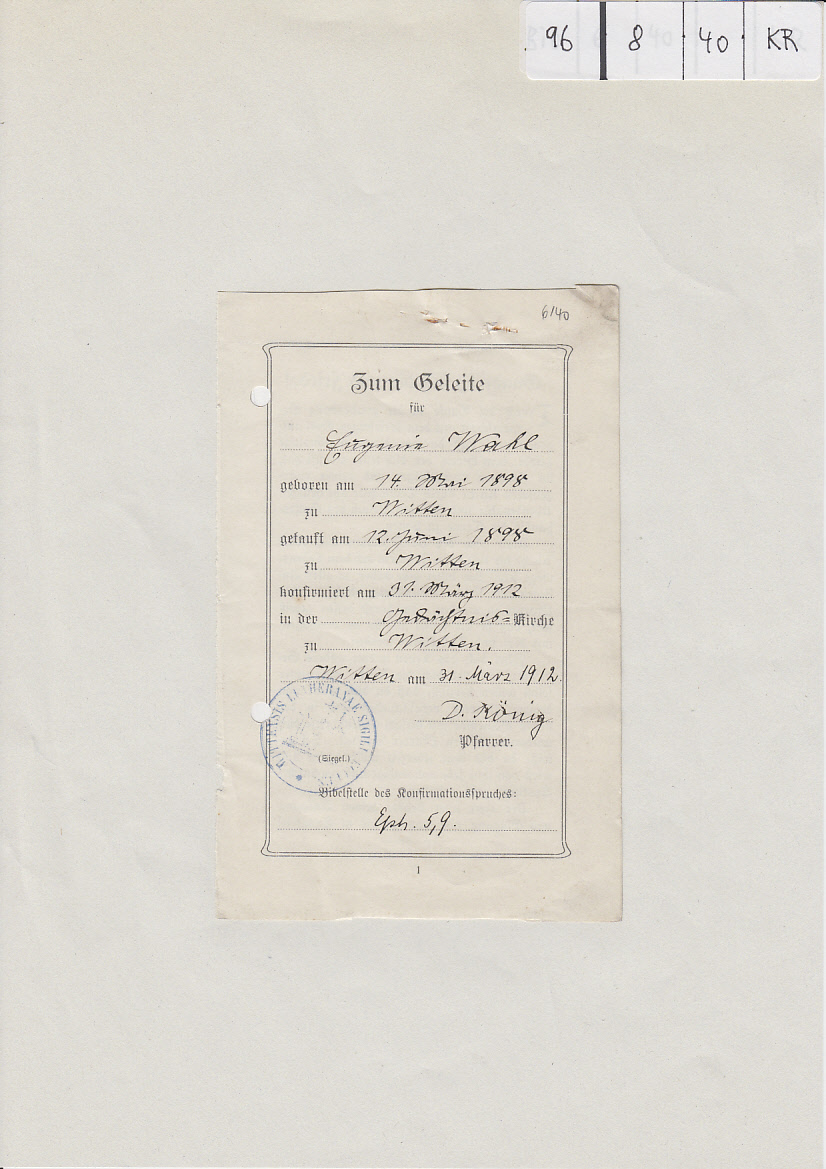 96 8 40 KR
6/40
Zum Geleite
für
Eugenie Wahl
geboren am 14. Mai 1898
zu Witten
getauft am 12. Juni 1898
zu Witten
konfirmiert am 31. März 1912
in der Gedächtnis=Kirche
zu Witten.
Witten am 31. März 1912.
D. König
Pfarrer.
LUTHERANAE SIGILL
(Siegel.)
Bibelstelle des Konfirmationsspruches:
Eph. 5,9.
1